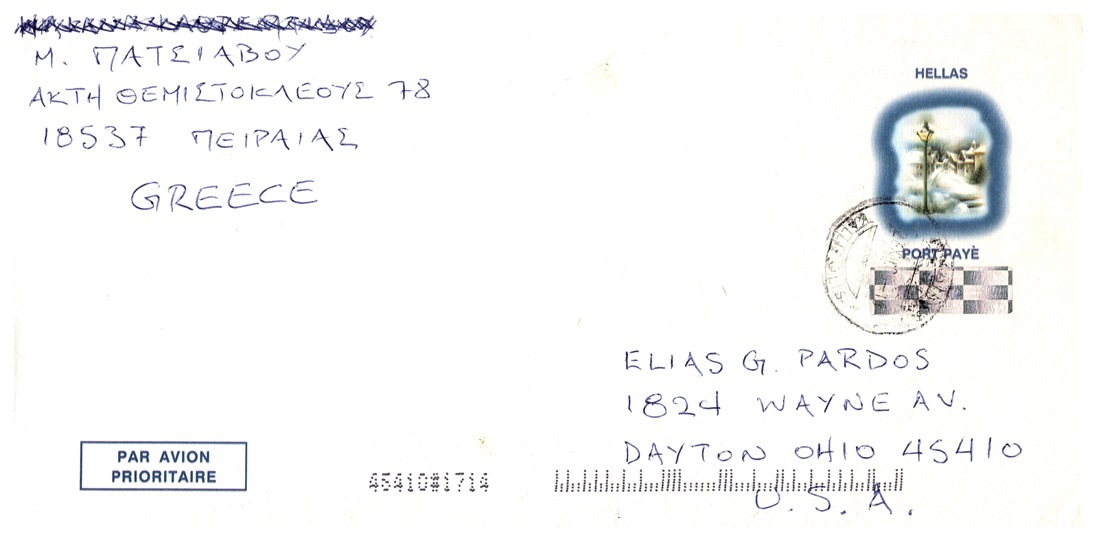 Μ. ΠΑΤΣΙΑΒΟΥ
ΑΚΤΗ ΘΕΜΙΣΤΟΚΛΕΟΥΣ 78
18537 ΠΕΙΡΑΙΑΣ
GREECE
HELLAS
PORT PAYÈ
ELIAS G. PARDOS
1824 WAYNE AV.
DAYTON OHIO 45410
U.S.A.
PAR AVION
PRIORITAIRE
45410#1714